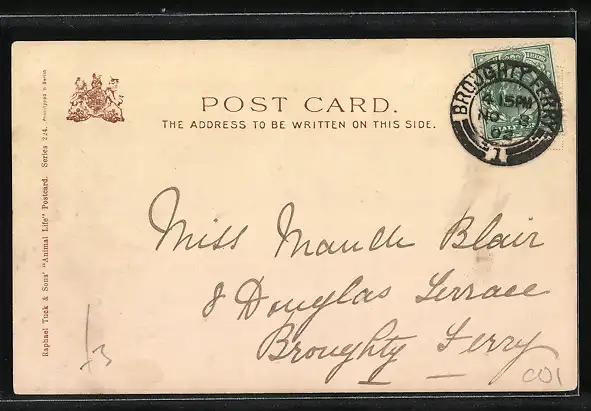 POST CARD.
THE ADDRESS TO BE WRITTEN ON THIS SIDE.
BROUGHTY FERRY
15PM
NO 8
Miss Maude Blair
8 Douglas Terrace
Broughty Ferry
Raphael Tuck & Sons' "Animal Life" Postcard. Series 224. Printed in Berlin
13
CO1